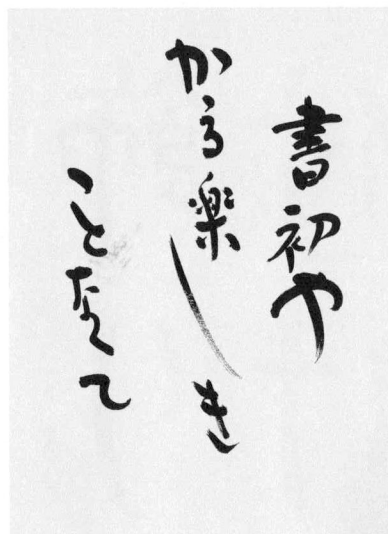 書初や
かゝる楽しき
ことなくて